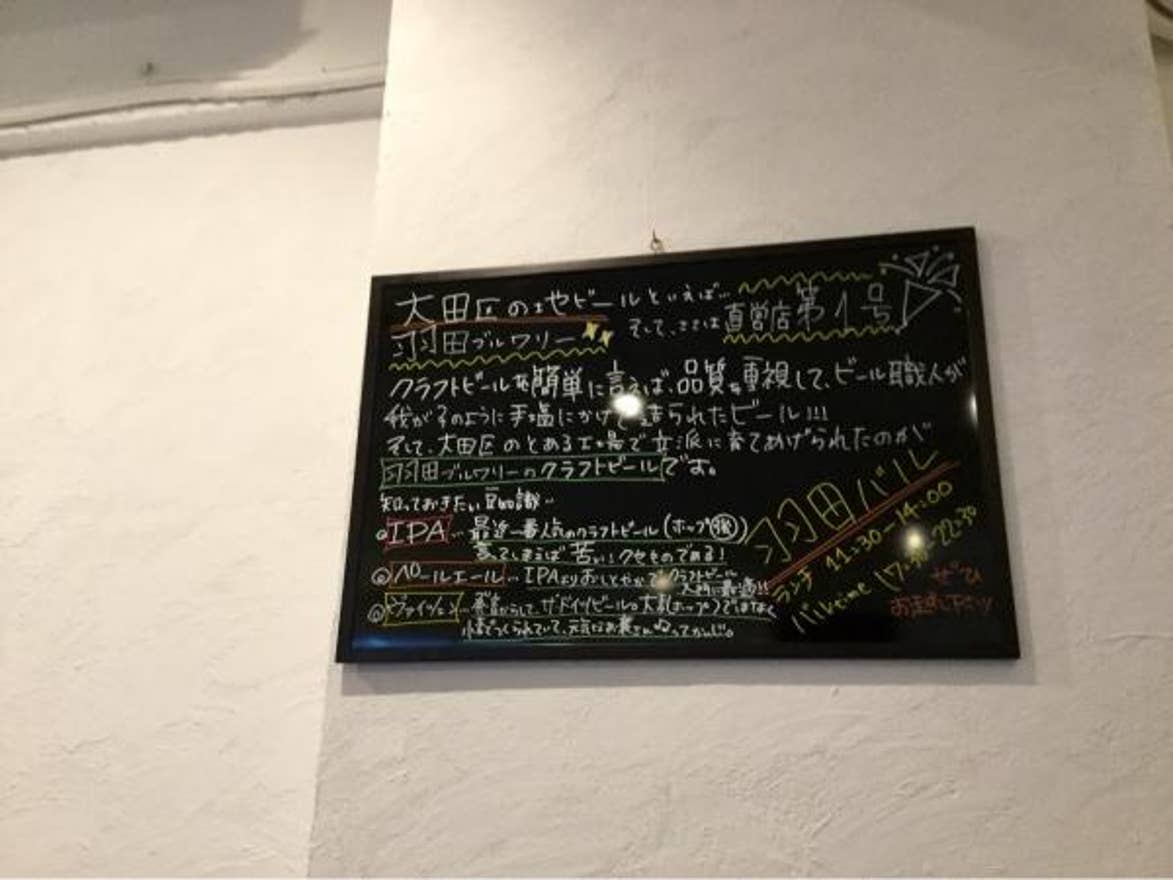 大田区の地ビールといえば…
羽田ブルワリー
そして、ここは直営店第1号
クラフトビールを簡単に言えば、品質を重視して、ビール職人が
我が子のように手塩にかけて造られたビール!!!
そして、大田区のとある工場で立派に育てあげられたのが
羽田ブルワリーのクラフトビールです。
知っておきたい豆知識…
◎IPA… 最近一番人気のクラフトビール(ホップ強)
言ってしまえば苦い!クセものである!
◎ペールエール… IPAよりおしとやかでクラフトビール
入門に最適!!
◎ヴァイツェン… ザ・ドイツビール。大麦(ホップ)ではなく
小麦でつくられていて、元気なお麦さん♫ってかんじ。
羽田バル
ランチ 11:30-14:00
バルtime 17:30-22:30
ぜひ
お越し下さい